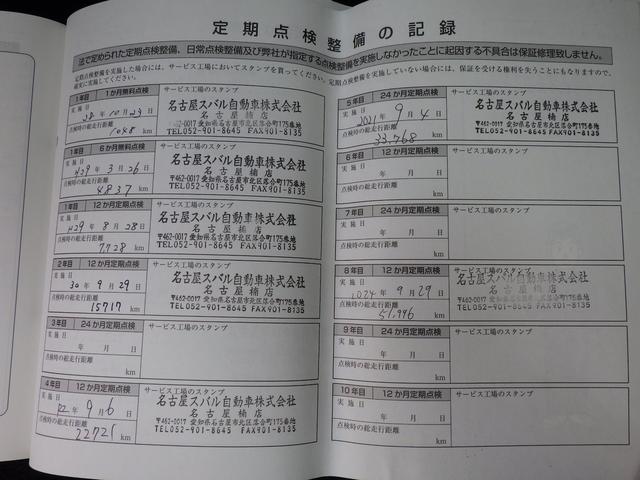 定期点検整備の記録
法で定められた定期点検整備、日常点検整備及び弊社が指定する点検整備を実施しなかったことに起因する不具合は保証修理致しません。
定期点検整備を実施した場合には、サービス工場においてスタンプを貰ってください。定期点検整備を実施していない場合には、保証を受ける権利を失うこともなりますので、
確実に実施してください。
1年目 1か月無料点検 サービス工場のスタンプ
実施日
28年10月23日
点検時の総走行距離
1048 km
名古屋スバル自動車株式会社
名古屋楠店
〒462-0017 愛知県名古屋市北区落合町175番地
TEL052-901-8645 FAX901-8135
1年目 6か月無料点検 サービス工場のスタンプ
実施日
H29年3月26日
点検時の総走行距離
4837 km
名古屋スバル自動車株式会社
名古屋楠店
〒462-0017 愛知県名古屋市北区落合町175番地
TEL052-901-8645 FAX901-8135
1年目 12か月定期点検 サービス工場のスタンプ
実施日
H29年8月28日
点検時の総走行距離
7728 km
名古屋スバル自動車株式会社
名古屋楠店
〒462-0017 愛知県名古屋市北区落合町175番地
TEL052-901-8645 FAX901-8135
2年目 12か月定期点検 サービス工場のスタンプ
実施日
30年9月29日
点検時の総走行距離
15717 km
名古屋スバル自動車株式会社
名古屋楠店
〒462-0017 愛知県名古屋市北区落合町175番地
TEL052-901-8645 FAX901-8135
3年目 24か月定期点検 サービス工場のスタンプ
実施日
年 月 日
点検時の総走行距離
km
4年目 12か月定期点検 サービス工場のスタンプ
実施日
年9月6日
点検時の総走行距離
22721 km
名古屋スバル自動車株式会社
名古屋楠店
〒462-0017 愛知県名古屋市北区落合町175番地
TEL052-901-8645 FAX901-8135
5年目 24か月定期点検 サービス工場のスタンプ
実施日
2021年9月4日
点検時の総走行距離
33,768 km
名古屋スバル自動車株式会社
名古屋楠店
〒462-0017 愛知県名古屋市北区落合町175番地
TEL052-901-8645 FAX901-8135
6年目 12か月定期点検 サービス工場のスタンプ
実施日
年 月 日
点検時の総走行距離
km
7年目 24か月定期点検 サービス工場のスタンプ
実施日
年 月 日
点検時の総走行距離
km
8年目 12か月定期点検 サービス工場のスタンプ
実施日
2024年9月29日
点検時の総走行距離
51,996 km
名古屋スバル自動車株式会社
名古屋楠店
〒462-0017 愛知県名古屋市北区落合町175番地
TEL052-901-8645 FAX901-8135
9年目 24か月定期点検 サービス工場のスタンプ
実施日
年 月 日
点検時の総走行距離
km
10年目 12か月定期点検 サービス工場のスタンプ
実施日
年 月 日
点検時の総走行距離
km